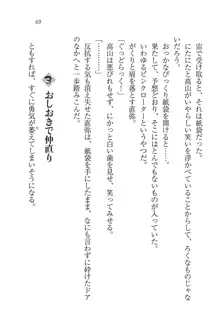 69
宙で受け取ると、それは紙袋だ。
なにかと高山がいやらしい笑いを浮かべているから、ろくなものじゃな
いだろう。
おっかなびっくり紙袋を開けると――。
予想と違わず、そこにはとんでもないものが入っていた。
いわゆるピンクローターというやつだ。
がくりと肩を落とす直弥。
(ぐっどらっく!)
高山は親指を立て、にかっと白い歯を見せ、笑ってみせる。
反抗する気も消え失せた直弥は、紙袋を手にしたまま、なにも言わずに砕けたドア
のなかへ一歩踏みこんだ。
3 おしおきで仲直り
さすがに、すぐに勇気が萎えてきそうになる。